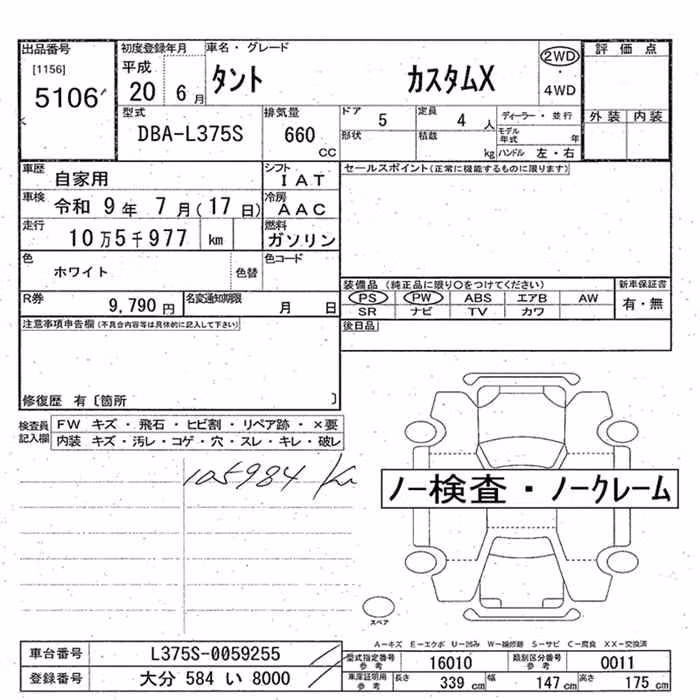 出品番号
[1156]
5106
初度登録年月
平成
20 6月
車名・グレード
タント カスタムX
2WD
・
4WD
評価点
外装 内装
型式
DBA-L375S
排気量
660
CC
ドア
5
形状
定員
4 人
積載
kg
ディーラー・並行
モデル年式 年
ハンドル 左・右
車歴
自家用
シフト
IAT
車検
令和 9年 7月(17日)
冷房
AAC
走行
10万5千977 km
燃料
ガソリン
色
ホワイト
色替
色コード
R券
9,790 円
名変通知期限
月 日
セールスポイント(正常に機能するものに限ります)
装備品(純正品に限り○をつけてください)
PS PW ABS エアB AW
SR ナビ TV カワ
新車保証書
有・無
後日品
注意事項申告欄(不具合内容等は具体的に記入して下さい)
修復歴 有〔箇所 〕
検査員
記入欄
FW キズ・飛石・ヒビ割・リペア跡・×要
内装 キズ・汚レ・コゲ・穴・スレ・キレ・破レ
105984 Km
ノー検査・ノークレーム
スペア
A-キズ E-エクボ U-凹み W-補修跡 S-サビ C-腐食 XX-交換済
車台番号
L375S-0059255
登録番号
大分 584 い 8000
型式指定番号
参考
16010
類別区分番号
参考
0011
車庫証明用
参考
長さ 339 cm
幅 147 cm
高さ 175 cm